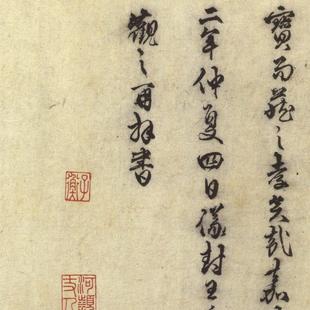 寶而藏之孝矣哉嘉
二年仲夏四日儀封王
觀之再拜書
子衡